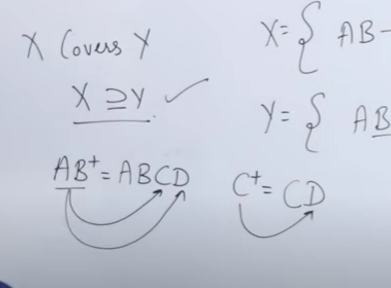 X Covers Y
X ⊇ Y ✓
AB⁺ = ABCD
X = { AB-
Y = { AB
C⁺ = CD